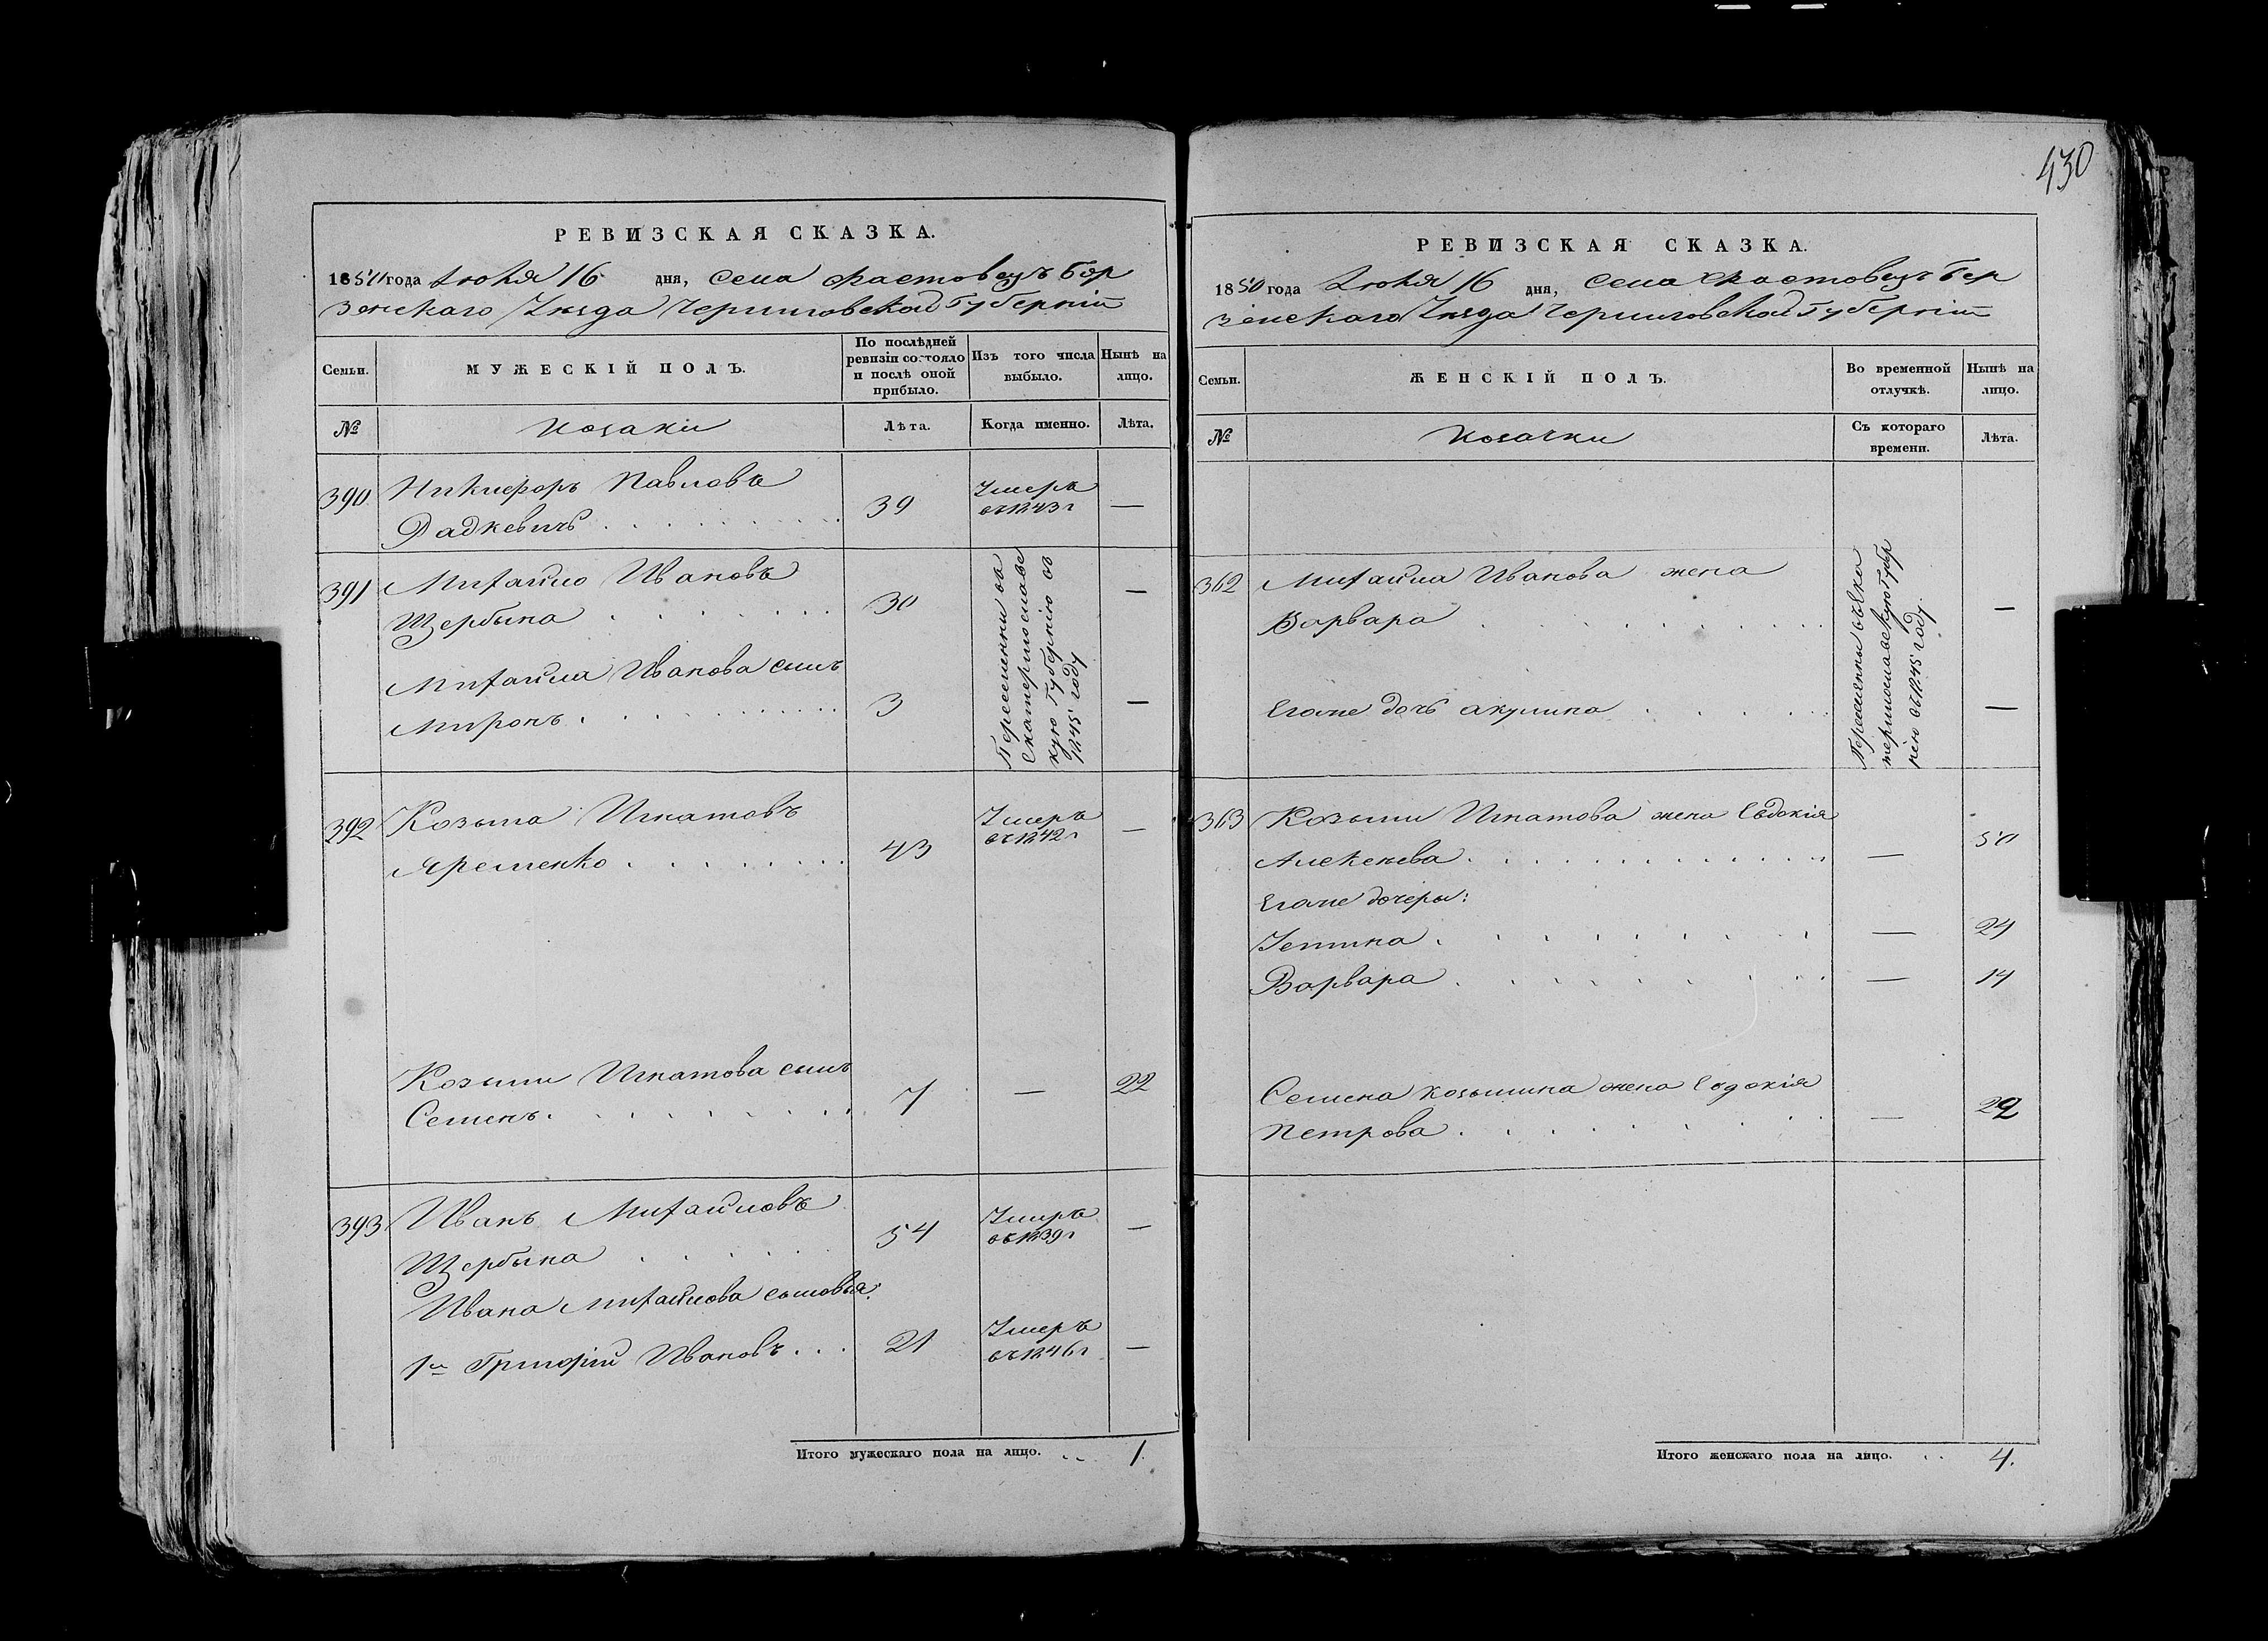 430
РЕВИЗСКАЯ СКАЗКА.
1850 года Июня 16 дня, Села Фастовецъ Бор
зенскаго Уѣзда Черниговской Губерніи
Семьи. МУЖЕСКІЙ ПОЛЪ. По послѣдней ревизіи состояло и послѣ оной прибыло. Изъ того числа выбыло. Нынѣ на лицо.
№ Козаки Лѣта. Когда именно. Лѣта.
390 Никифоръ Павловъ Умеръ
Радкевичъ 39 въ 1843 г —
391 Михайло Ивановъ
Щербына 30 —
Михайла Иванова сынъ
Миронъ 3 —
Переселенны въ
Екатеринославс
кую Губернію въ
1845 году
392 Козьма Игнатовъ Умеръ
Яременко 43 въ 1842 г —
Козьмы Игнатова сынъ
Семенъ 7 — 22
393 Иванъ Михайловъ Умеръ
Щербына 54 въ 1839 г —
Ивана Михайлова сыновья:
1й Григорій Ивановъ 21 Умеръ
въ 1846 г —
Итого мужескаго пола на лицо. 1.
РЕВИЗСКАЯ СКАЗКА.
1850 года Июня 16 дня, Села Фастовецъ Бор
зенскаго Уѣзда Черниговской Губерніи
Семьи. ЖЕНСКІЙ ПОЛЪ. Во временной отлучкѣ. Нынѣ на лицо.
№ Козачки Съ котораго времени. Лѣта.
362 Михайла Иванова жена
Варвара —
Егоже дочь Акулина —
Переселенны въ Ека
теринославскую Губер
нію въ 1845 году.
363 Козьмы Игнатова жена Евдокія
Алексѣева — 50
Егоже дочери:
Устина — 24
Варвара — 14
Семена Козьмина жена Евдокія
Петрова — 22
Итого женскаго пола на лицо. 4.